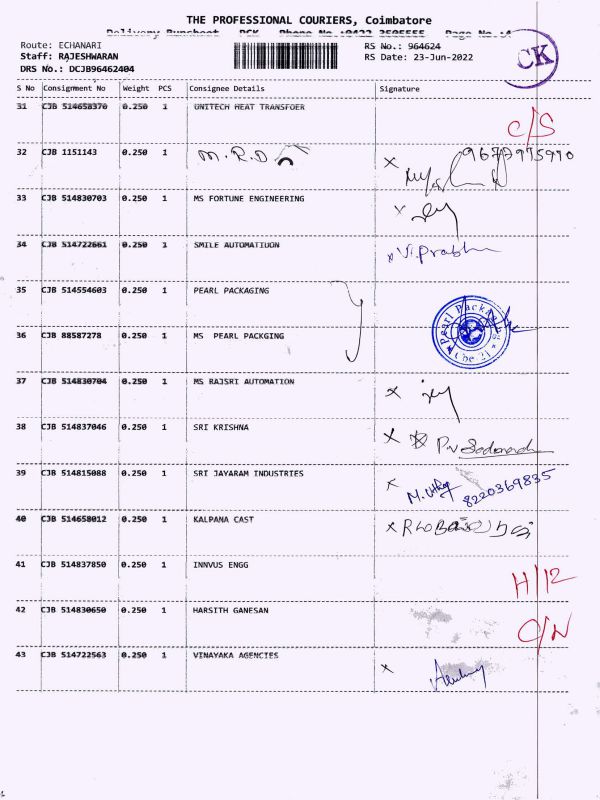 THE PROFESSIONAL COURIERS, Coimbatore
Delivery Runsheet PCK Phone No.:0422 3505555 Page No.:4
Route: ECHANARI RS No.: 964624
Staff: RAJESHWARAN RS Date: 23-Jun-2022
DRS No.: DCJB96462404
CK
S No Consignment No Weight PCS Consignee Details Signature
31 CJB 514658370 0.250 1 UNITECH HEAT TRANSFOER
C/S
32 CJB 1151143 0.250 1 M.R.D x
33 CJB 514830703 0.250 1 MS FORTUNE ENGINEERING x
34 CJB 514722661 0.250 1 SMILE AUTOMATIUON x V.Prabhu
35 CJB 514554603 0.250 1 PEARL PACKAGING
36 CJB 88587278 0.250 1 MS PEARL PACKGING
37 CJB 514830704 0.250 1 MS RAJSRI AUTOMATION x
38 CJB 514837046 0.250 1 SRI KRISHNA x
39 CJB 514815088 0.250 1 SRI JAYARAM INDUSTRIES x 8220369835
40 CJB 514658012 0.250 1 KALPANA CAST x
41 CJB 514837850 0.250 1 INNVUS ENGG
H/12
42 CJB 514830650 0.250 1 HARSITH GANESAN
C/N
43 CJB 514722563 0.250 1 VINAYAKA AGENCIES x